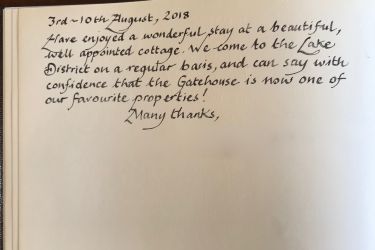 3rd ~ 10th August, 2018
Have enjoyed a wonderful stay at a beautiful,
well appointed cottage. We come to the Lake
District on a regular basis, and can say with
confidence that the Gatehouse is now one of
our favourite properties!
Many thanks,